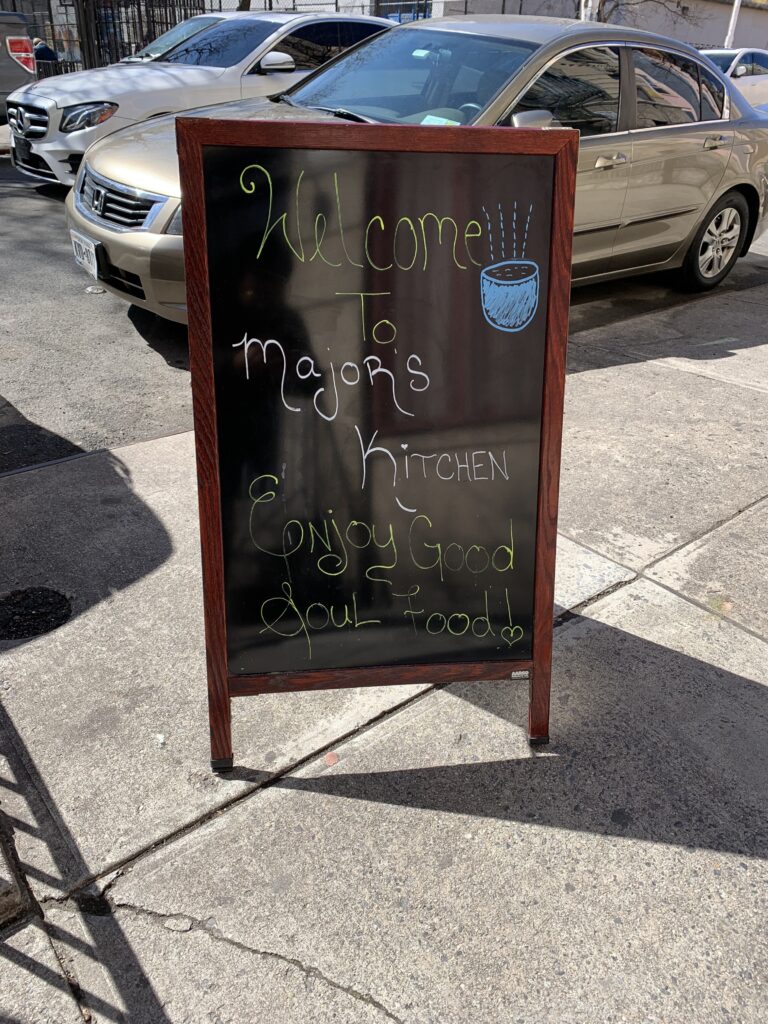 Welcome
To
Major's
Kitchen
Enjoy Good
Soul Food!